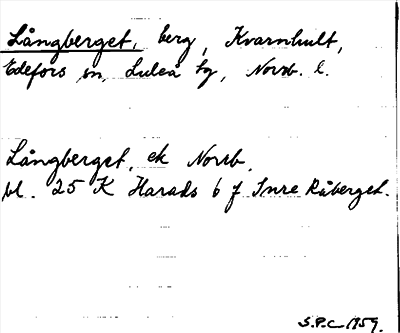 Långberget, berg, Kvarnhult,
Edefors sn, Luleå tg, Norrb. l.
Långberget, ek Norrb.
bl. 25 K Harads 6 f Inre Råberget.
S.P.C. 1959.